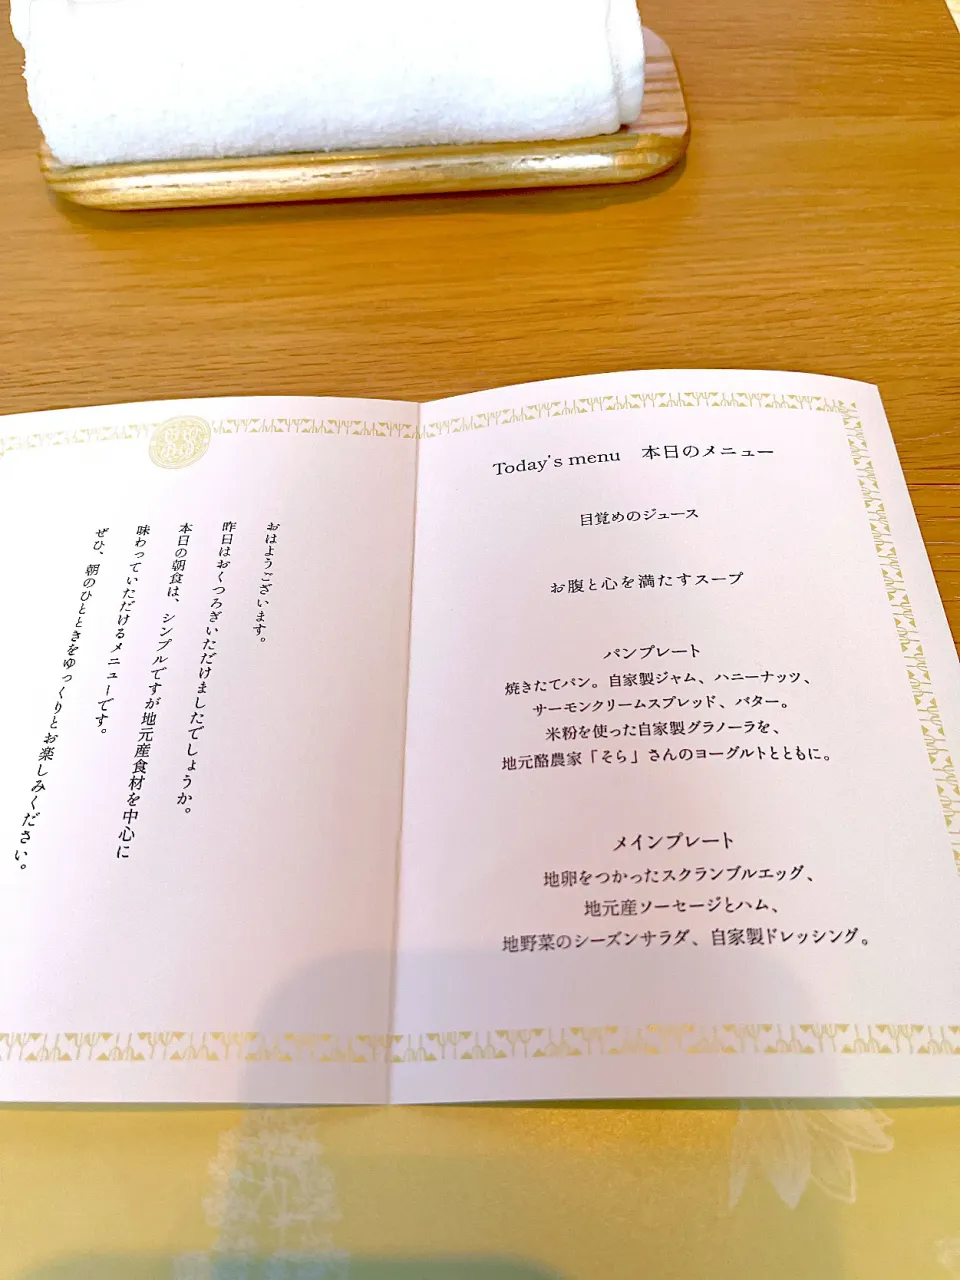 おはようございます。
昨日はおくつろぎいただけましたでしょうか。
本日の朝食は、シンプルですが地元産食材を中心に
味わっていただけるメニューです。
ぜひ、朝のひとときをゆっくりとお楽しみください。
Today's menu 本日のメニュー
目覚めのジュース
お腹と心を満たすスープ
パンプレート
焼きたてパン。自家製ジャム、ハニーナッツ、
サーモンクリームスプレッド、バター。
米粉を使った自家製グラノーラを、
地元酪農家「そら」さんのヨーグルトとともに。
メインプレート
地卵をつかったスクランブルエッグ、
地元産ソーセージとハム、
地野菜のシーズンサラダ、自家製ドレッシング。